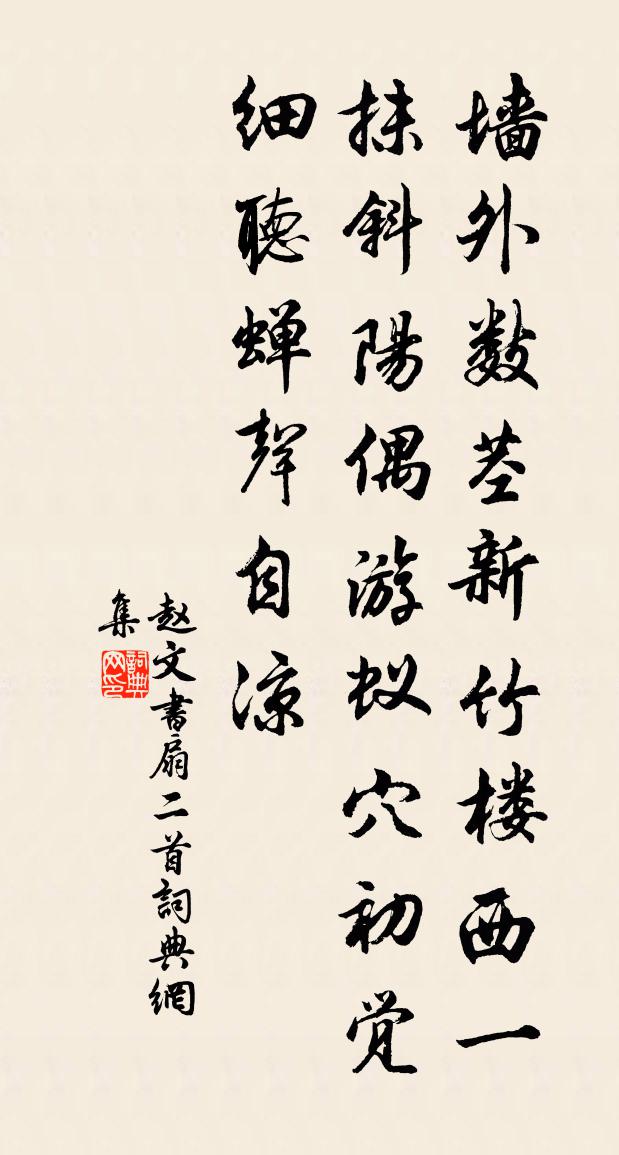 墙外数茎新竹楼西一
抹斜陽偶游蚁穴初觉
细聽蝉聲自凉
赵文書扇二首詞典網
集
詞典
网印